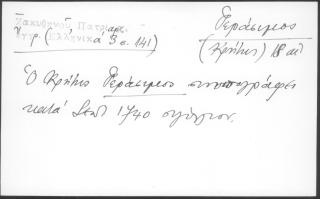 Ζακυθηνοῦ, Πατριαρχ.
ἔγγρ. (Ἑλληνικά 3 σ. 141)
Γεράσιμος
(Κρήτης) 18 αἰ
Ὁ Κρήτης Γεράσιμος συνυπογράφει
κατά 1740 σιγίλλιον.